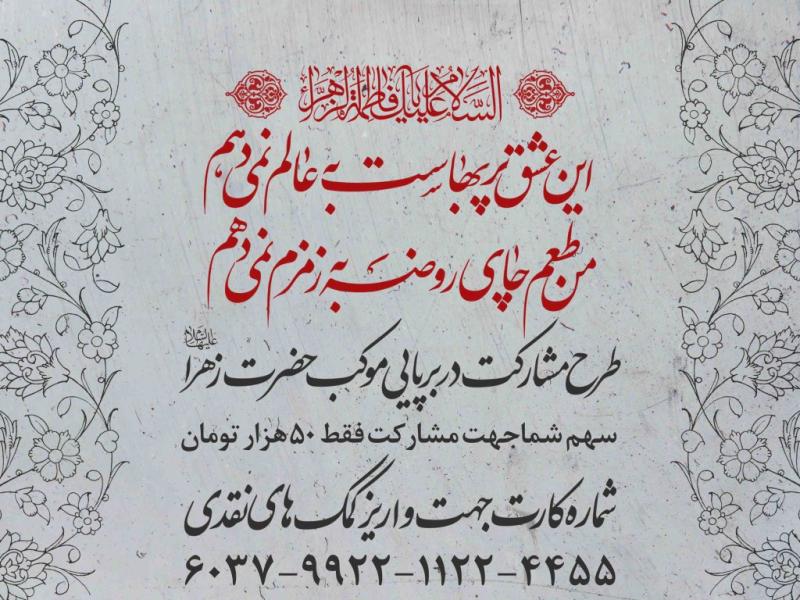 السلام علیک یا فاطمة الزهراء
این عشق پر بهاست به عالم نمی دهم
من طعم چای روضه به زمزم نمی دهم
طرح مشارکت در برپایی موکب حضرت زهرا علیهاالسلام
سهم شما جهت مشارکت فقط ۵۰ هزار تومان
شماره کارت جهت واریز کمک های نقدی
۶۰۳۷-۹۹۲۲-۱۱۲۲-۴۴۵۵